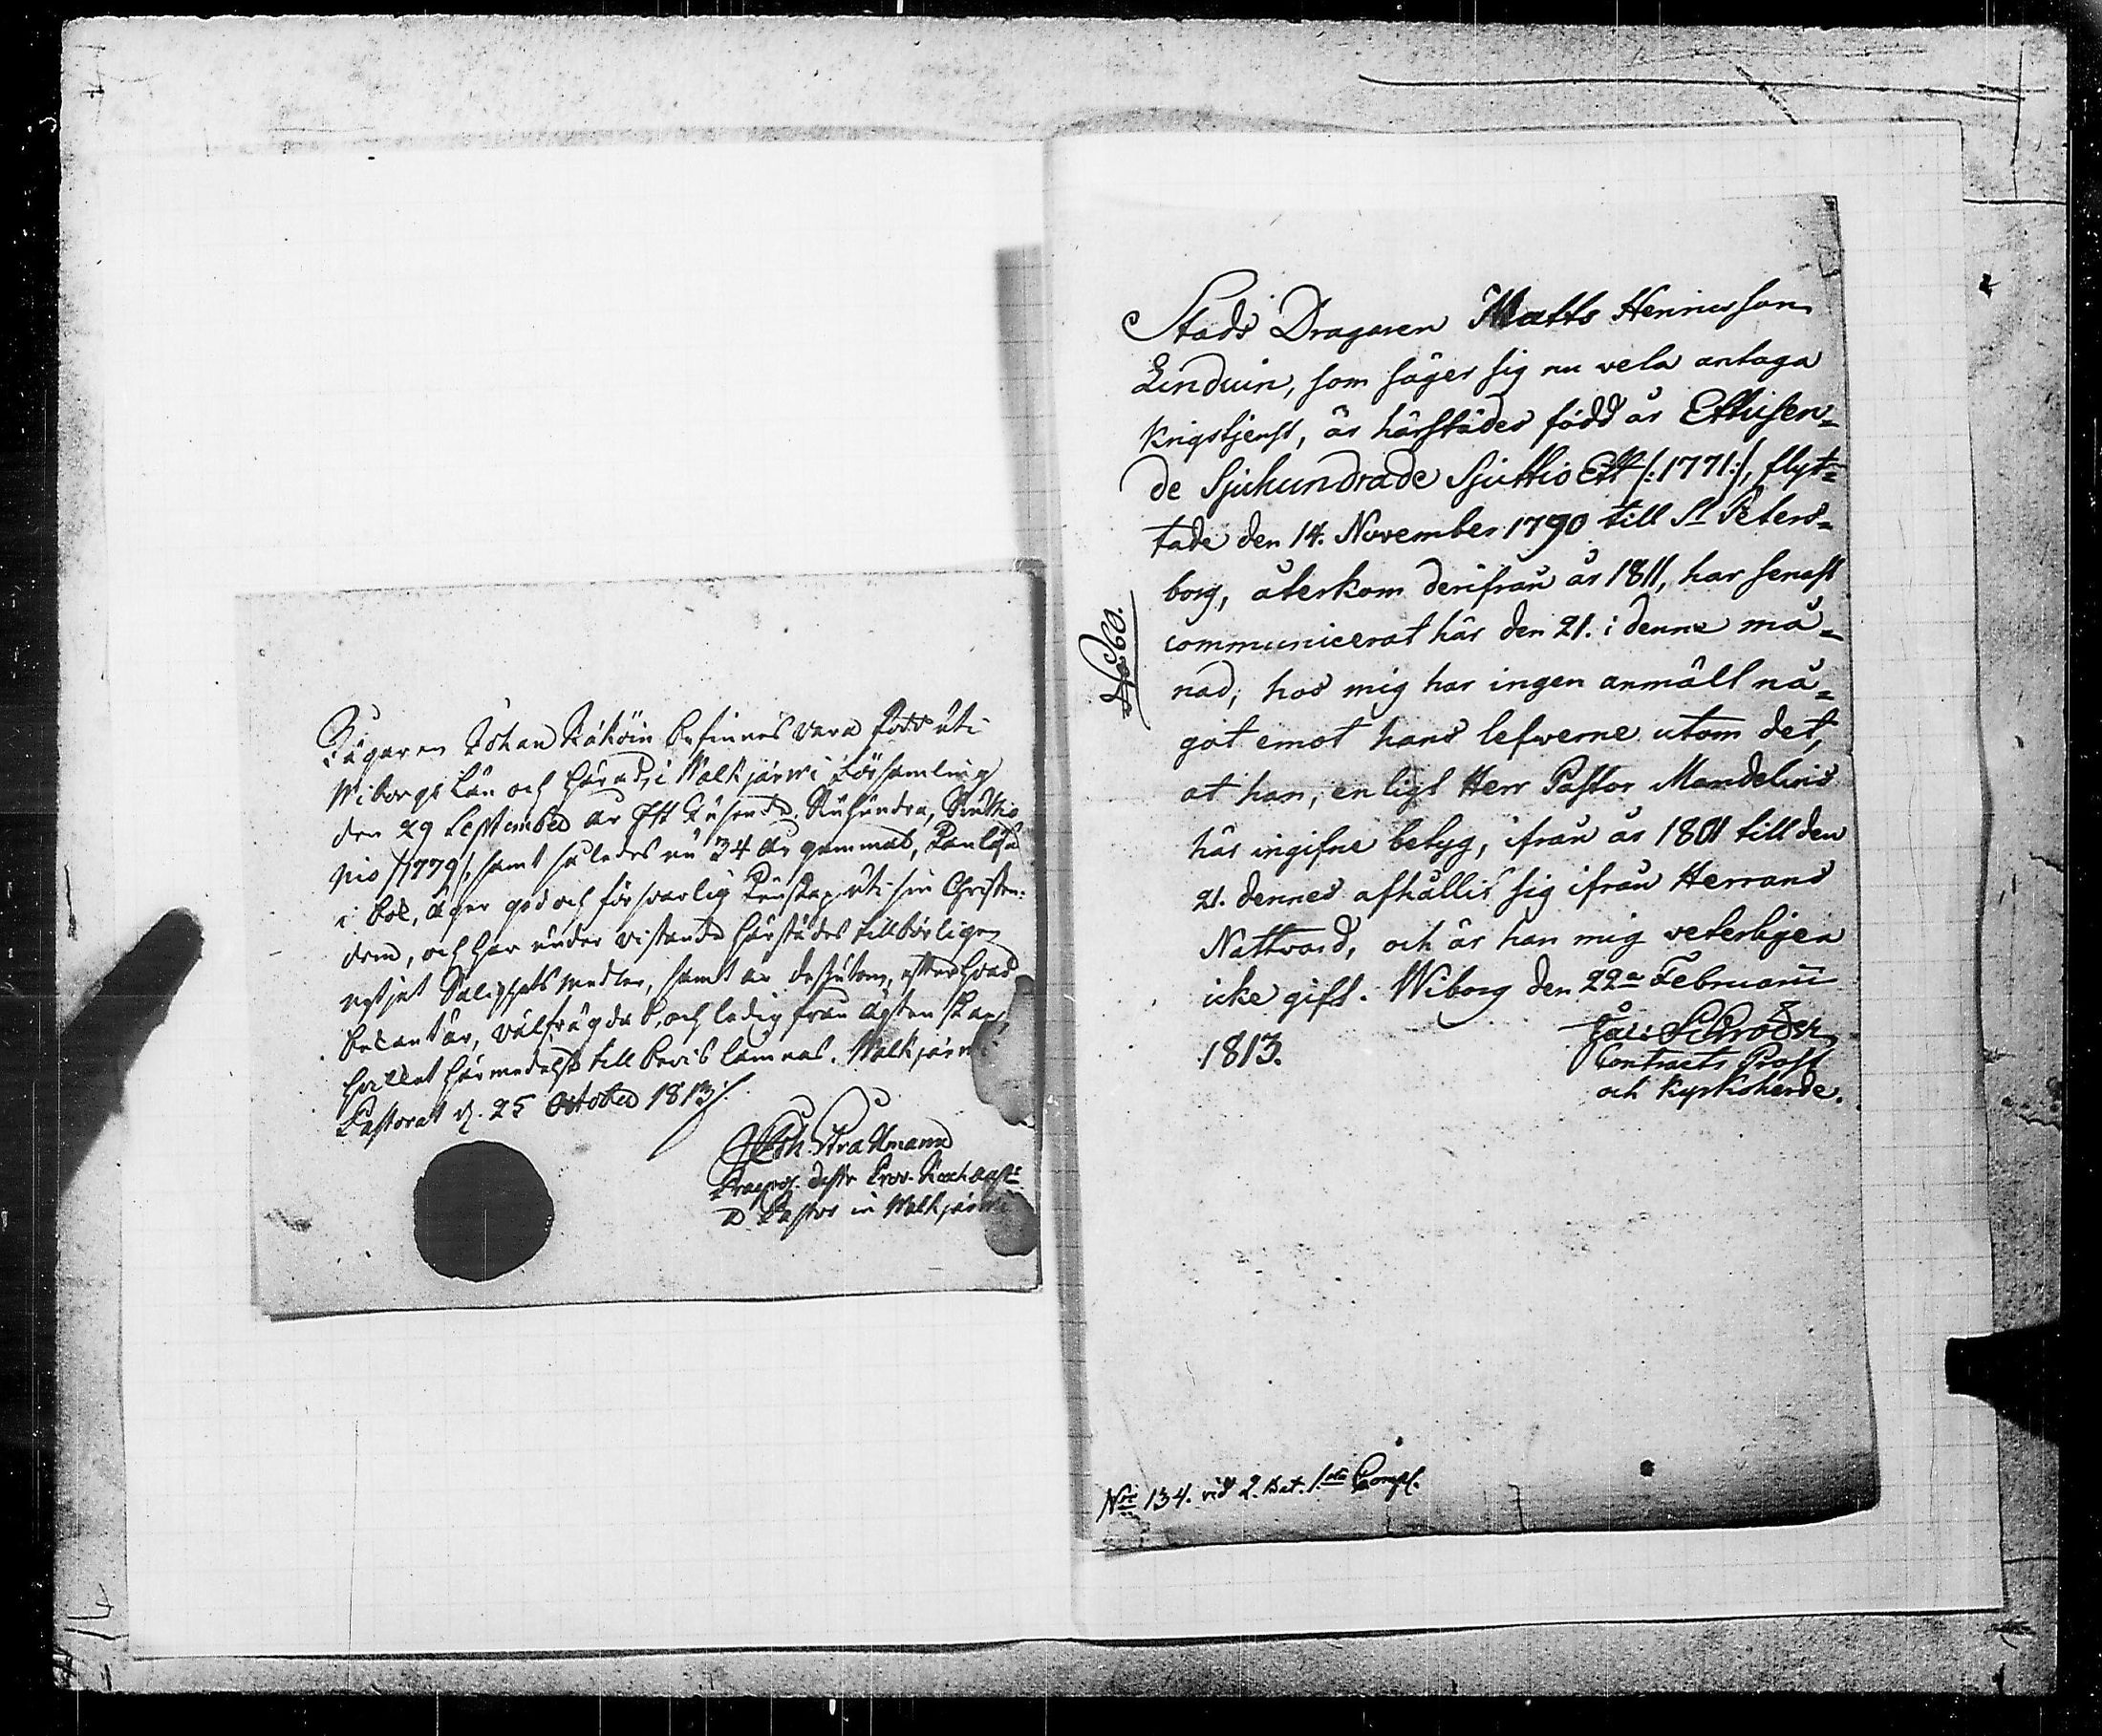 Jägaren Johan Käköin befinnes vara född uti
Wiborgs Län och Härad, i Walkjärwi Församling
den 29 September år Ett Tusende Sjuhundra, Siuttio
nio /:1779:/, samt således nu 34 år gammal, Kan läsa
i bok, äger god och försvarlig Kunskap uti sin Christen-
dom, och har under vistande härstädes tillbörligen
nytjat Salighets medlen, samt är dessutom, efter hvad
bekant är, välfrägdad, och ledig från ägtenskap,
hvilket härmedelst till bevis lämnas. Walkjärwi
Pastorat d. 25 October 1813
Joh. Strahlmann
Praepos.
Pastor in Walkjärwi
No 60.
Stads Dragaren Matts Henricsson
Linduin, som säger sig nu vela antaga
Krigstjenst, är härstädes född år Ettusen=
de Sjuhundrade Sjuttio Ett /:1771:/, flyt=
tade den 14. November 1790 till St Peters=
borg, återkom derifrån år 1811, har senast
communicerat här den 21. i denne må=
nad; hos mig har ingen anmält nå=
got emot hans lefwerne utom det,
at han, enligt Herr Pastor Mandelins
här ingifne betyg, ifrån år 1801 till den
21. dennes afhållit sig ifrån Herrans
Nattvard, och är han mig veterligen
icke gift. Wiborg den 22a Februarii
1813.
Schröder
Contracts Prost
och Kyrkoherde.
No 134. vid 2. Bat. 1sta Comp.